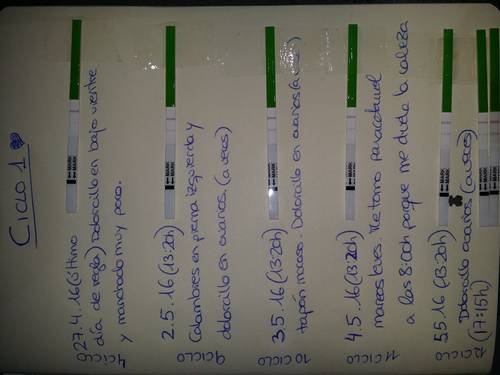 CICLO 1
27.4.16 (último
día de regla) Dolorcillo en bajo vientre
y manchado muy poco.
CICLO
MARK
MARK
2.5.16 (13:20h)
Calambres en pierna izquierda y
dolorcillo en ovarios. (a veces)
9 CICLO
MARK
MARK
3.5.16 (13:20h)
tapón mocoso. Dolorcillo en ovarios (a veces)
10 CICLO
MARK
MARK
4.5.16 (13:20h)
mareos leves. Me tomo paracetamol
a las 8:00h porque me duele la cabeza
11 CICLO
MARK
MARK
5.5.16 (13:20h)
Dolorcillo ovarios (a veces)
(17:15h)
12 CICLO
MARK
MARK